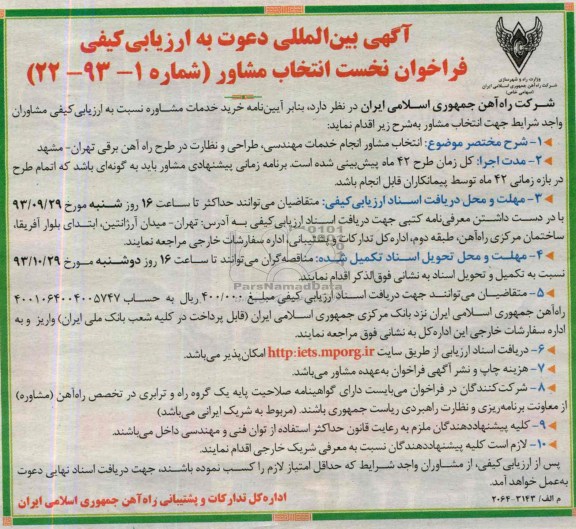 آگهی بین‌المللی دعوت به ارزیابی‌کیفی
فراخوان نخست انتخاب مشاور (شماره ۱- ۹۳- ۲۲)
وزارت راه و شهرسازی
شرکت راه‌آهن جمهوری اسلامی ایران
(سهامی خاص)
شرکت راه‌آهن جمهوری اسلامی ایران در نظر دارد، بنابر آیین‌نامه خرید خدمات مشاوره نسبت به ارزیابی‌کیفی مشاوران
واجد شرایط جهت انتخاب مشاور به‌شرح زیر اقدام نماید:
۱- شرح مختصر موضوع: انتخاب مشاور انجام خدمات مهندسی، طراحی و نظارت در طرح راه آهن برقی تهران- مشهد
۲- مدت اجرا: کل زمان طرح ۴۲ ماه پیش‌بینی شده است. برنامه زمانی پیشنهادی مشاور باید به گونه‌ای باشد که اتمام طرح
در بازه زمانی ۴۲ ماه توسط پیمانکاران قابل انجام باشد.
۳- مهلت و محل دریافت اسناد ارزیابی‌کیفی: متقاضیان می‌توانند حداکثر تا ساعت ۱۶ روز شنبه مورخ ۹۳/۰۹/۲۹
با در دست داشتن معرفی‌نامه کتبی جهت دریافت اسناد ارزیابی‌کیفی به آدرس: تهران- میدان آرژانتین، ابتدای بلوار آفریقا،
ساختمان مرکزی راه‌آهن، طبقه دوم، اداره‌کل تدارکات و پشتیبانی، اداره سفارشات خارجی مراجعه نمایند.
۴- مهلت و محل تحویل اسناد تکمیل شده: مناقصه‌گران می‌توانند تا ساعت ۱۶ روز دوشنبه مورخ ۹۳/۱۰/۲۹
نسبت به تکمیل و تحویل اسناد به نشانی فوق‌الذکر اقدام نمایند.
۵- متقاضیان می‌توانند جهت دریافت اسناد ارزیابی کیفی مبلغ ۴۰۰/۰۰۰ ریال به حساب ۴۰۰۱۰۶۴۰۰۴۰۰۵۷۴۷
راه‌آهن جمهوری اسلامی ایران نزد بانک مرکزی جمهوری اسلامی ایران (قابل پرداخت در کلیه شعب بانک ملی ایران) واریز و به
اداره سفارشات خارجی این اداره‌کل به نشانی فوق مراجعه نمایند.
۶- دریافت اسناد ارزیابی از طریق سایت http:iets.mporg.ir امکان‌پذیر می‌باشد.
۷- هزینه چاپ و نشر آگهی فراخوان به‌عهده مشاور می‌باشد.
۸- شرکت‌کنندگان در فراخوان می‌بایست دارای گواهینامه صلاحیت پایه یک گروه راه و ترابری در تخصص راه‌آهن (مشاوره)
از معاونت برنامه‌ریزی و نظارت راهبردی ریاست جمهوری باشند. (مربوط به شریک ایرانی می‌باشد)
۹- کلیه پیشنهاددهندگان ملزم به رعایت قانون حداکثر استفاده از توان فنی و مهندسی داخل می‌باشند.
۱۰- لازم است کلیه پیشنهاددهندگان نسبت به معرفی شریک خارجی اقدام نمایند.
پس از ارزیابی‌کیفی، از مشاوران واجد شرایط که حداقل امتیاز لازم را کسب نموده باشند، جهت دریافت اسناد نهایی دعوت
به‌عمل خواهد آمد.
م الف/ ۳۱۴۳-۲۰۶۴
اداره‌کل تدارکات و پشتیبانی راه‌آهن جمهوری اسلامی ایران
ParsNamadData